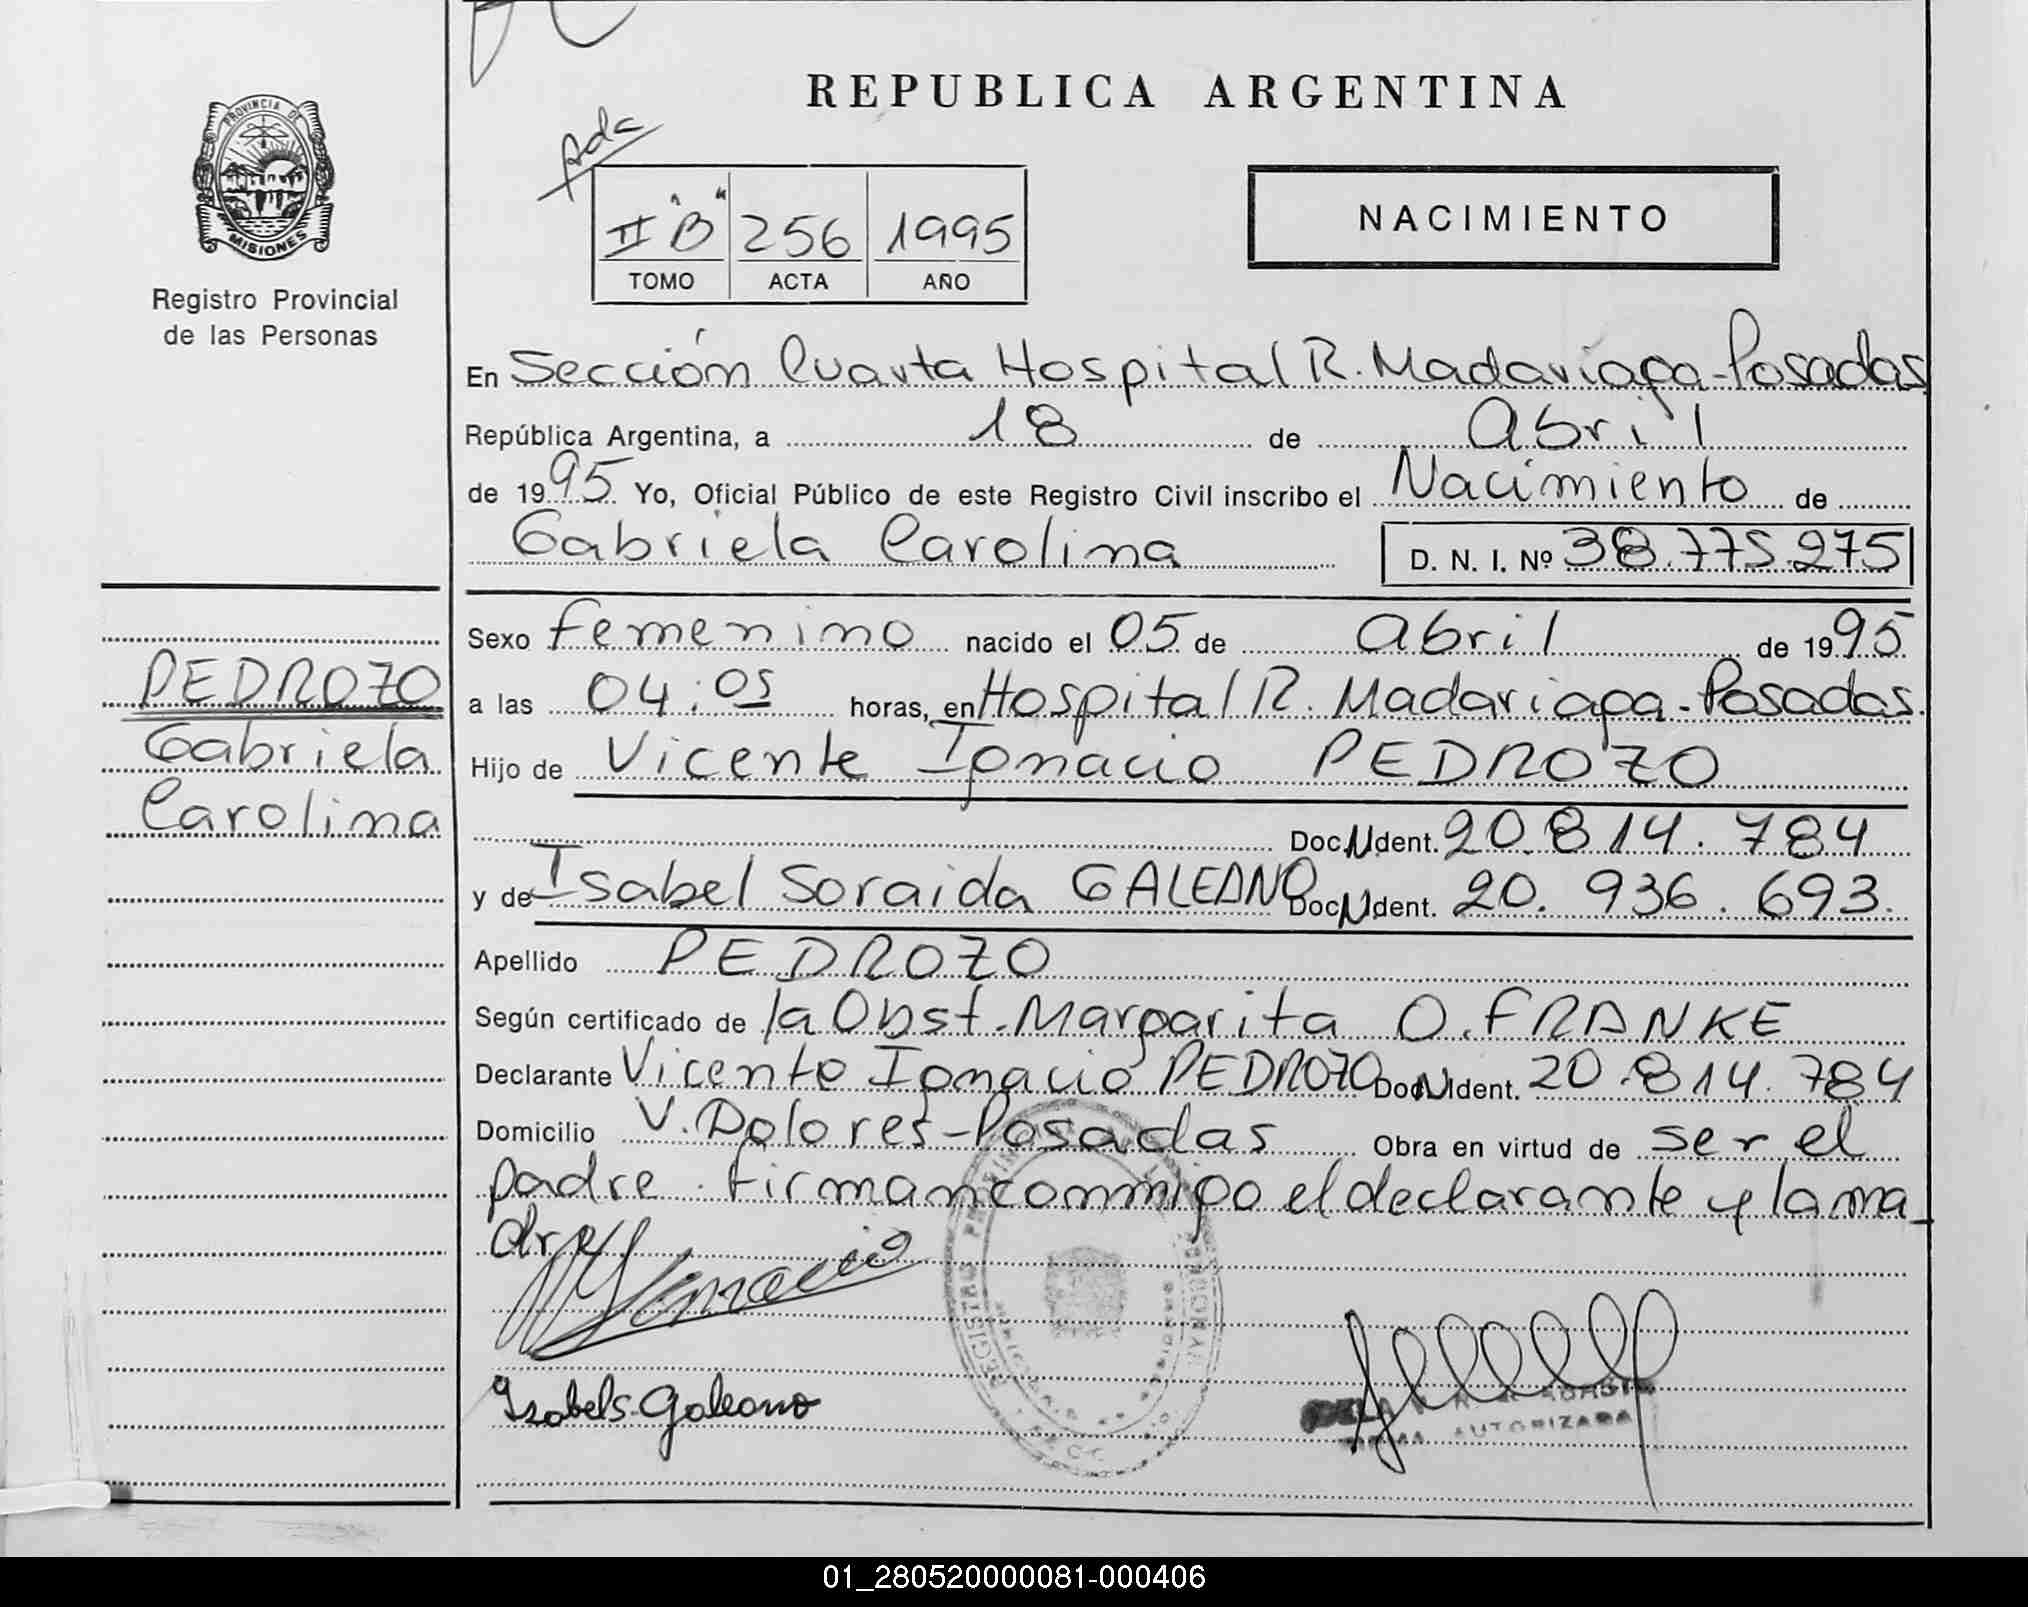 PROVINCIA DE
MISIONES
Registro Provincial
de las Personas
PEDROZO
Gabriela
Carolina
REPUBLICA ARGENTINA
II "B" 256 1995
TOMO ACTA AÑO
NACIMIENTO
En Sección Cuarta Hospital R. Madariaga-Posadas
República Argentina, a 18 de Abril
de 1995 Yo, Oficial Público de este Registro Civil inscribo el Nacimiento de
Gabriela Carolina D. N. I. Nº 38.775.275
Sexo femenino nacido el 05 de Abril de 1995
a las 04:05 horas, en Hospital R. Madariaga-Posadas.
Hijo de Vicente Ignacio PEDROZO
Doc.N.Ident. 20.814.784
y de Isabel Soraida GALEANO Doc.N.Ident. 20.936.693.
Apellido PEDROZO
Según certificado de la Obst. Margarita O. FRANKE
Declarante Vicente Ignacio PEDROZO Doc.N.Ident. 20.814.784
Domicilio V. Dolores-Posadas Obra en virtud de ser el
padre. Firman conmigo el declarante y la ma-
dre
Ignacio
Isabel S. Galeano
AUTORIZADA
01_280520000081-000406